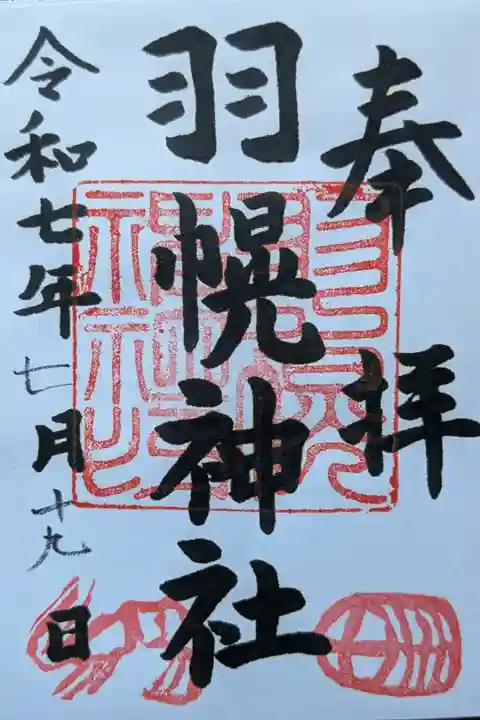 奉拝
羽幌神社
令和七年七月十九日